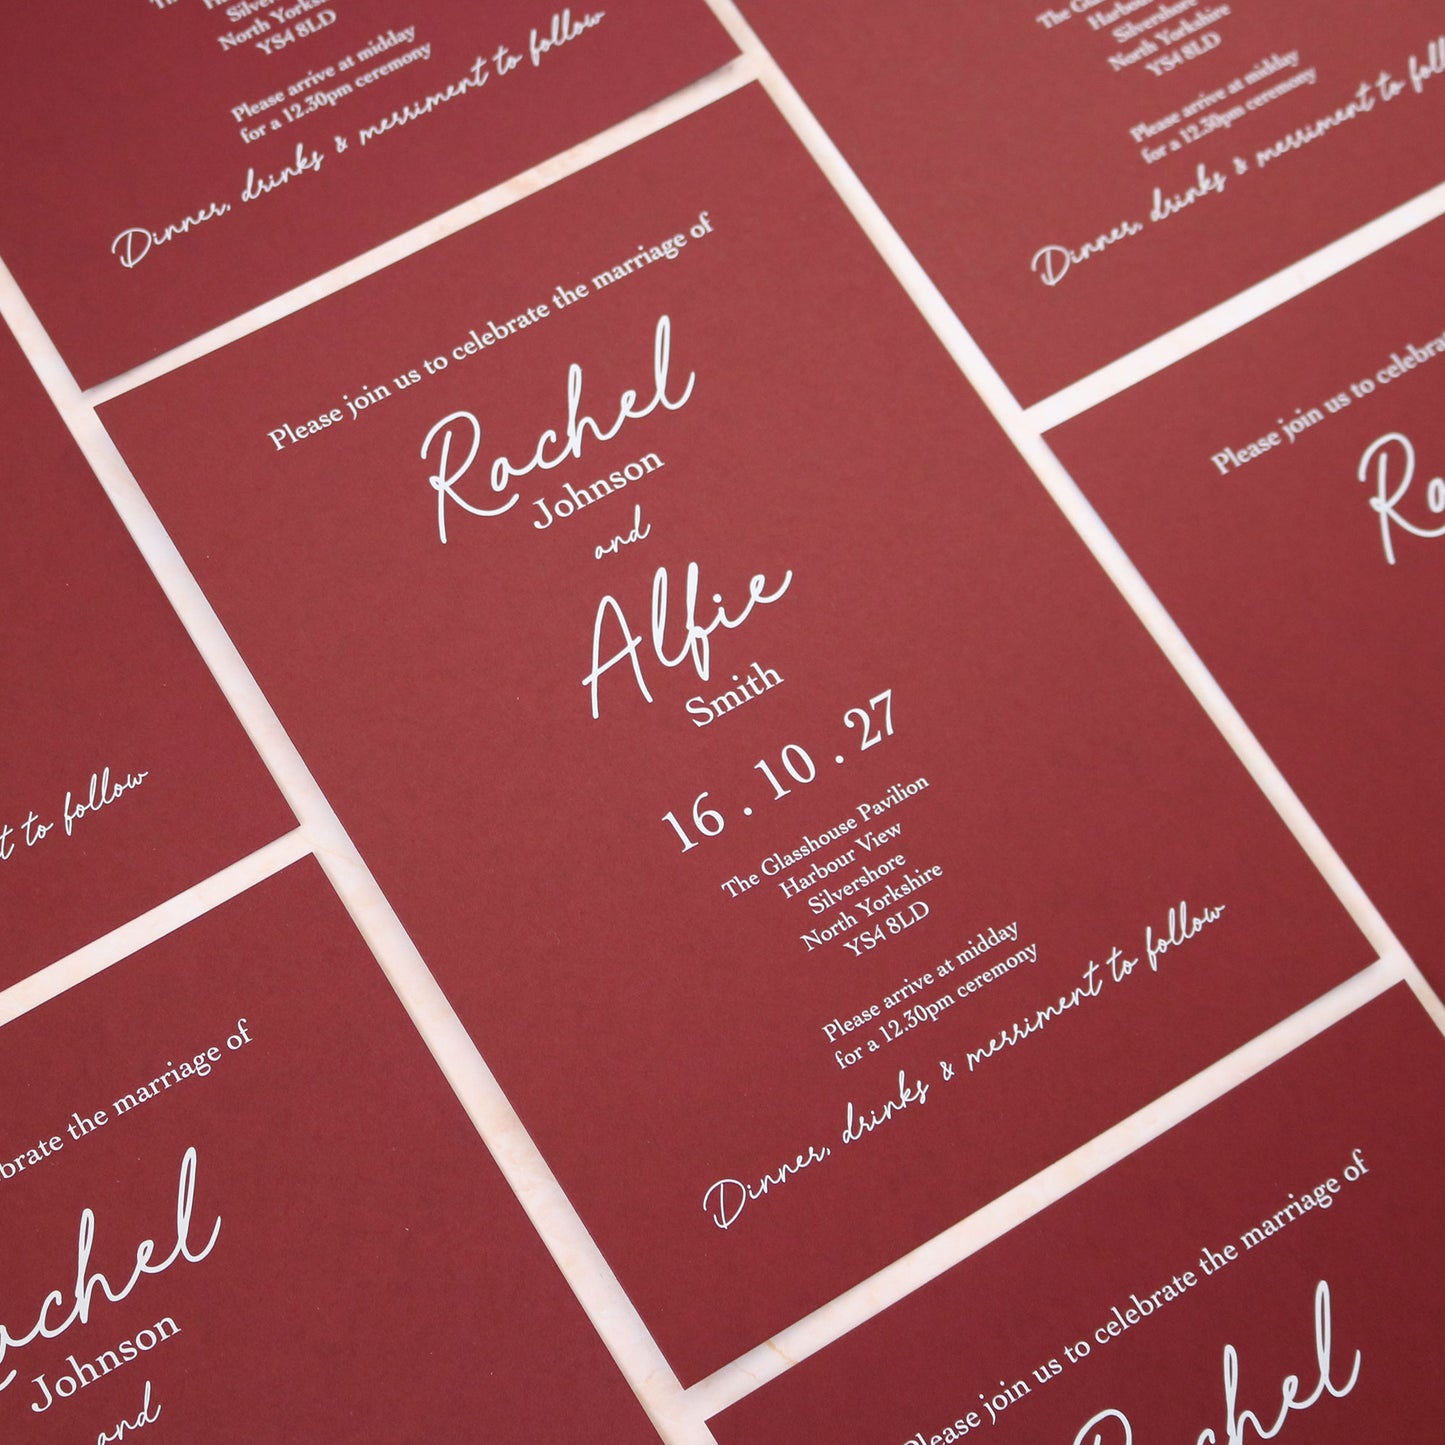 North Yorkshire
YS4 8LD
Please arrive at midday
for a 12.30pm ceremony
Dinner, drinks & merriment to follow
Silvershore
North Yorkshire
YS4 8LD
Please arrive at midday
for a 12.30pm ceremony
Dinner, drinks & merriment to
Please join us to celebrate the marriage of
Rachel
Johnson
and
Alfie
Smith
16 . 10 . 27
The Glasshouse Pavilion
Harbour View
Silvershore
North Yorkshire
YS4 8LD
Please arrive at midday
for a 12.30pm ceremony
Dinner, drinks & merriment to follow
Please join us to
to follow
the marriage of
Johnson
and
Please join us to celebrate the marriage of
Rachel